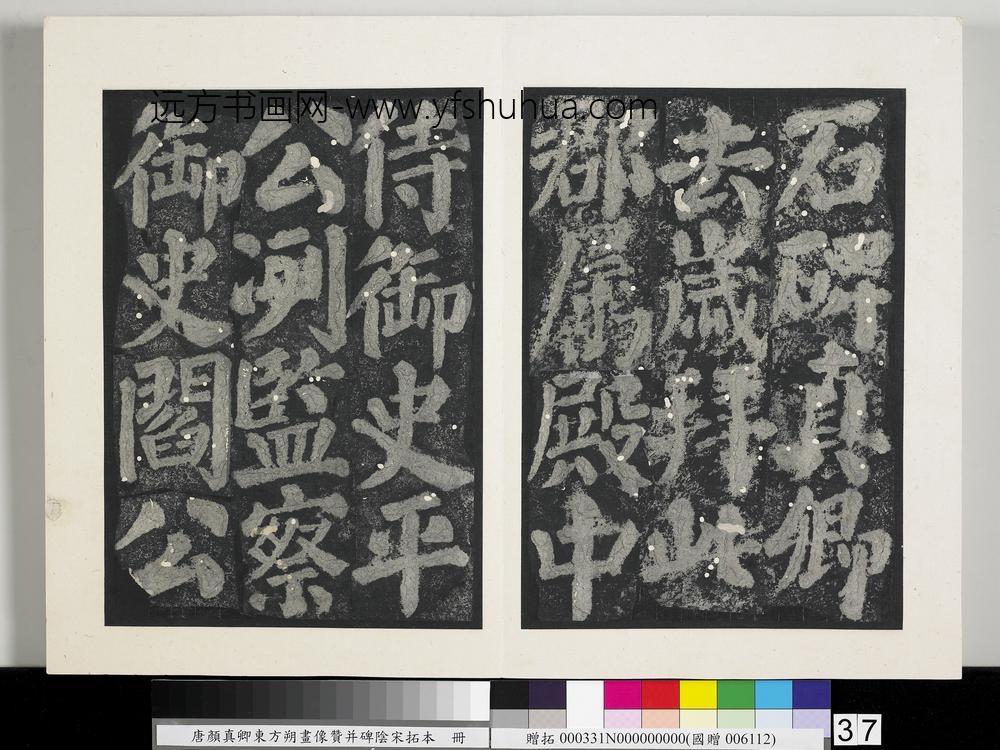 远方书画网-www.yfshuhua.com
石碑真卿
去歲拜此
郡屬殿中
侍御史平
公冽監察
御史閻公
唐顏真卿東方朔畫像贊并碑陰宋拓本 冊
贈拓 000331N000000000(國贈 006112)
37